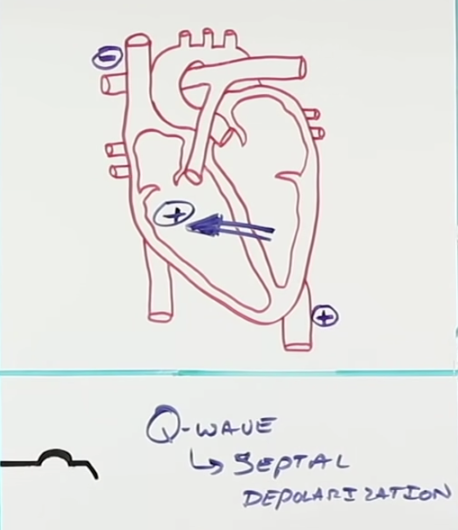 -
+
+
Q-WAVE
↳ SEPTAL
DEPOLARIZATION